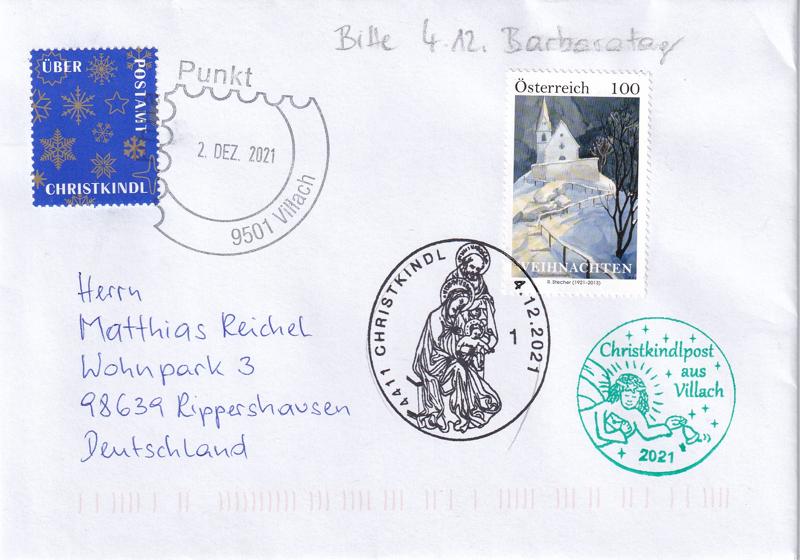 Bitte 4.12. Barbaratag
ÜBER
POSTAMT
CHRISTKINDL
Punkt
2. DEZ. 2021
9501 Villach
Österreich 100
WEIHNACHTEN
R. Stecher (1921–2013)
4411 CHRISTKINDL
4.12.2021
1
Christkindlpost
aus
Villach
2021
Herrn
Matthias Reichel
Wohnpark 3
98639 Rippershausen
Deutschland